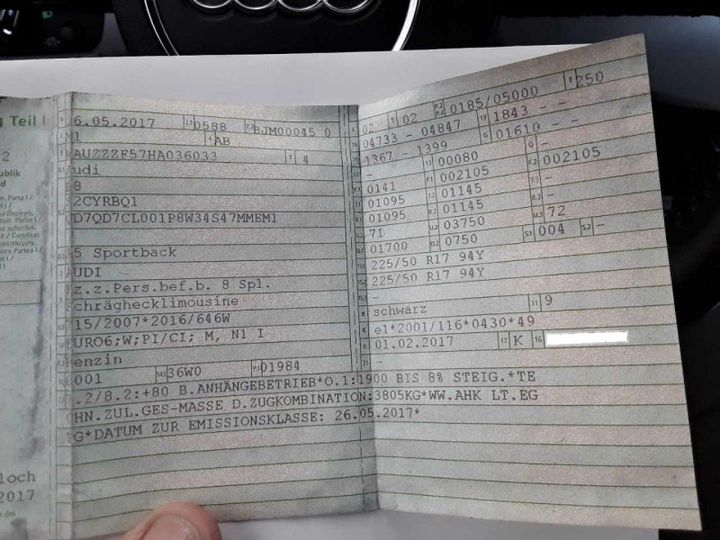 g Teil I
2
ublik
d
loch
2017
6.05.2017 2.1 0588 2.2 BJM00045 0
M1 4 AB
AUZZZF57HA036033 3 4
udi
B8
2CYRBQ1
D7QD7CL001P8W34S47MMEM1
5 Sportback
UDI
z.z.Pers.bef.b. 8 Spl.
chräghecklimousine
15/2007*2016/646W
URO6;W;PI/CI; M, N1 I
enzin
0001 14.1 36W0 P.1 01984
.2/8.2:+80 B.ANHÄNGEBETRIEB*O.1:1900 BIS 8% STEIG.*TE
HN.ZUL.GES-MASSE D.ZUGKOMBINATION:3805KG*WW.AHK LT.EG
G*DATUM ZUR EMISSIONSKLASSE: 26.05.2017*
02 9 02 P.2 P.4 0185/05000 T 250
04733 - 04847 19 1843 - -
1367 - 1399 G 01610 - -
- 13 00080 Q -
0141 F.1 002105 F.2 002105
01095 01145 -
01095 01145 -
71 03750 U.3 72
01700 O.2 0750 S.1 004 S.2 -
225/50 R17 94Y
225/50 R17 94Y
-
schwarz 11 9
e1*2001/116*0430*49
01.02.2017 17 K 16
-